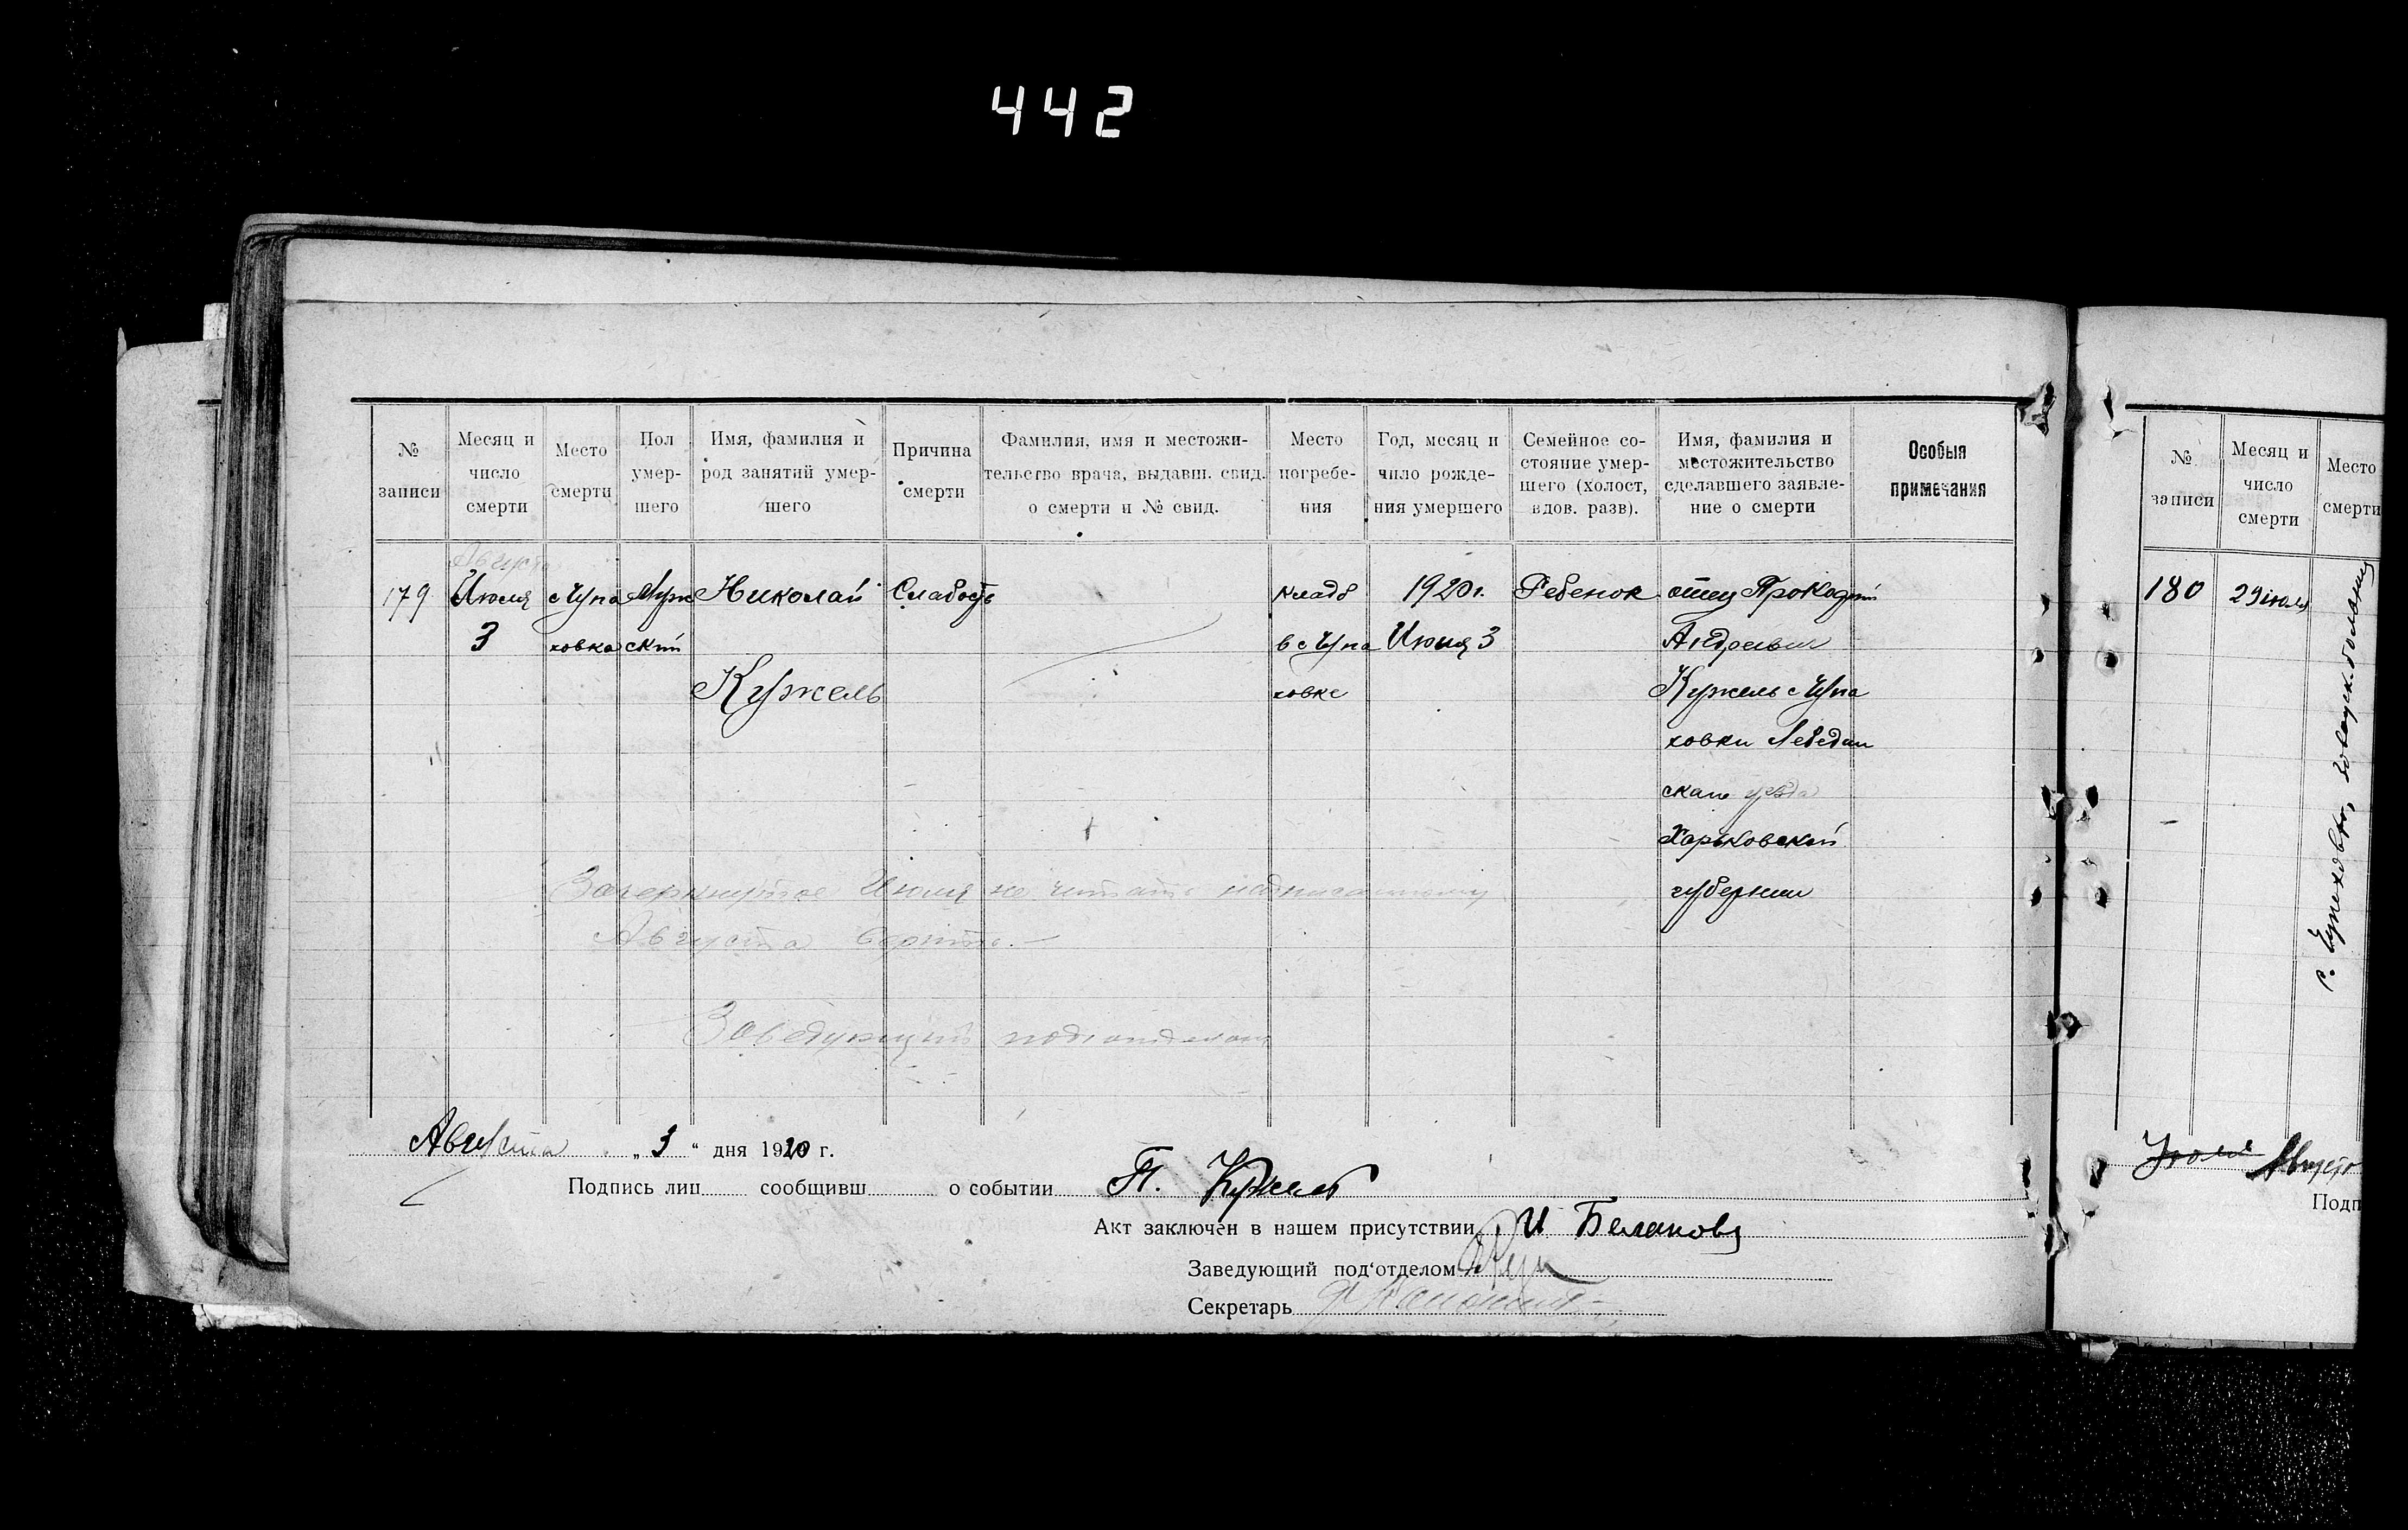 442
№ записи
Месяц и число смерти
Место смерти
Пол умер-шего
Имя, фамилия и род занятий умер-шего
Причина смерти
Фамилия, имя и местожи-тельство врача, выдавш. свид. о смерти и № свид.
Место погребе-ния
Год, месяц и чило рожде-ния умершего
Семейное со-стояние умер-шего (холост, вдов. разв).
Имя, фамилия и местожительство сделавшего заявле-ние о смерти
Особыя примечания
179
Августа
Июля
3
с Чупа
ховка
Муж
ский
Николай
Кужель
Слабость
кладб
в с Чупа
ховке
1920 г.
Июня 3
Ребенок
отец
Андреевич
Кужель с Чупа
ховки Лебедин
скаго уезда
Харьковской
губернии
Зачеркнутое Июля не читать надписанному
Августа верить.—
Заведующий подотделом
Августа „ 3 “ дня 1920 г.
Подпись лиц сообщивш о событии П. Кужель
Акт заключен в нашем присутствии И
Заведующий под‘отделом
Секретарь
№ записи
Месяц и число смерти
Место смерти
180
29 июля
Июля Августа
Подп